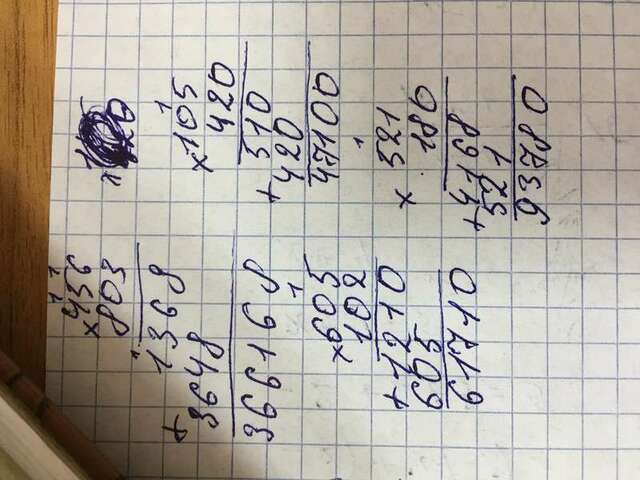 1 1
456
× 803
1
1368
+
3648
366168
1
× 605
102
+ 1210
605
61710
1
× 105
420
+ 510
420
47100
1
× 521
180
+ 4168
521
93780